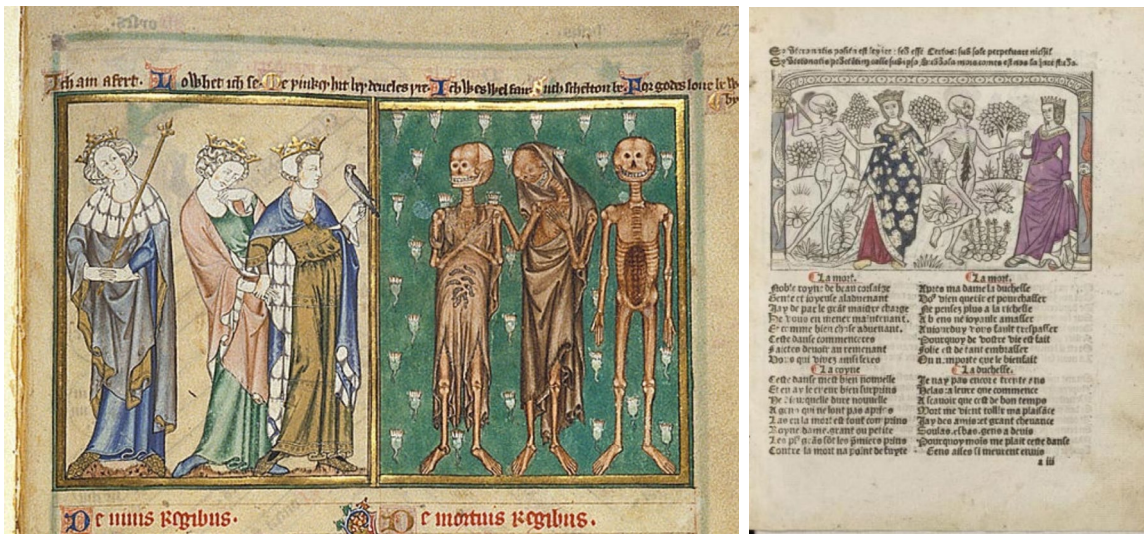 Ich am afert. Lo whet ich se. Me þinkeþ hit beþ deueles þre. Ich wes wel fair. Such scheltou be. For godes loue be w
by
De uiuis Regibus. De mortuis Regibus.
sed esse sub sole
La mort.
Noble royne de beau corsaige
Gente et ioyeuse aladuenant
Jay de par le grāt maistre charge
De vous en mener maintenant.
Et comme bien chose aduenant.
Ceste danse commenceres
Faictes deuoir au remenant
Vous qui viuez ainsi feres
La royne
Ceste danse mest bien nouuelle
Et en ay le cueur bien surprins
He dure nouuelle
A gens qui ne lont pas apris
Las en la mort est tout comprins
Royne dame grant ou petite
Les pl⁹ grās sōt les p̄miers prins
Contre la mort na point de fuyte
La mort.
Apres ma dame la duchesse
Vo⁹ vien querir et pourchasser
Ne pensez plus a la richesse
A biens ne ioyaulx amasser
Auiourduy vous fault trespasser
Pourquoy de vostre vie est fait
Folie est de tant embrasser
On n'emporte que le bienfait
La duchesse.
Je nay pas encore trente ans
Helas a leure que commence
A scauoir que cest de bon temps
Mort me vient tollir ma plaisāce
Jay des amis et grant cheuance
Soulas esbas gens a deuis
Pourquoy mois me plait ceste danse
Gens aises si meurent enuis
a iii